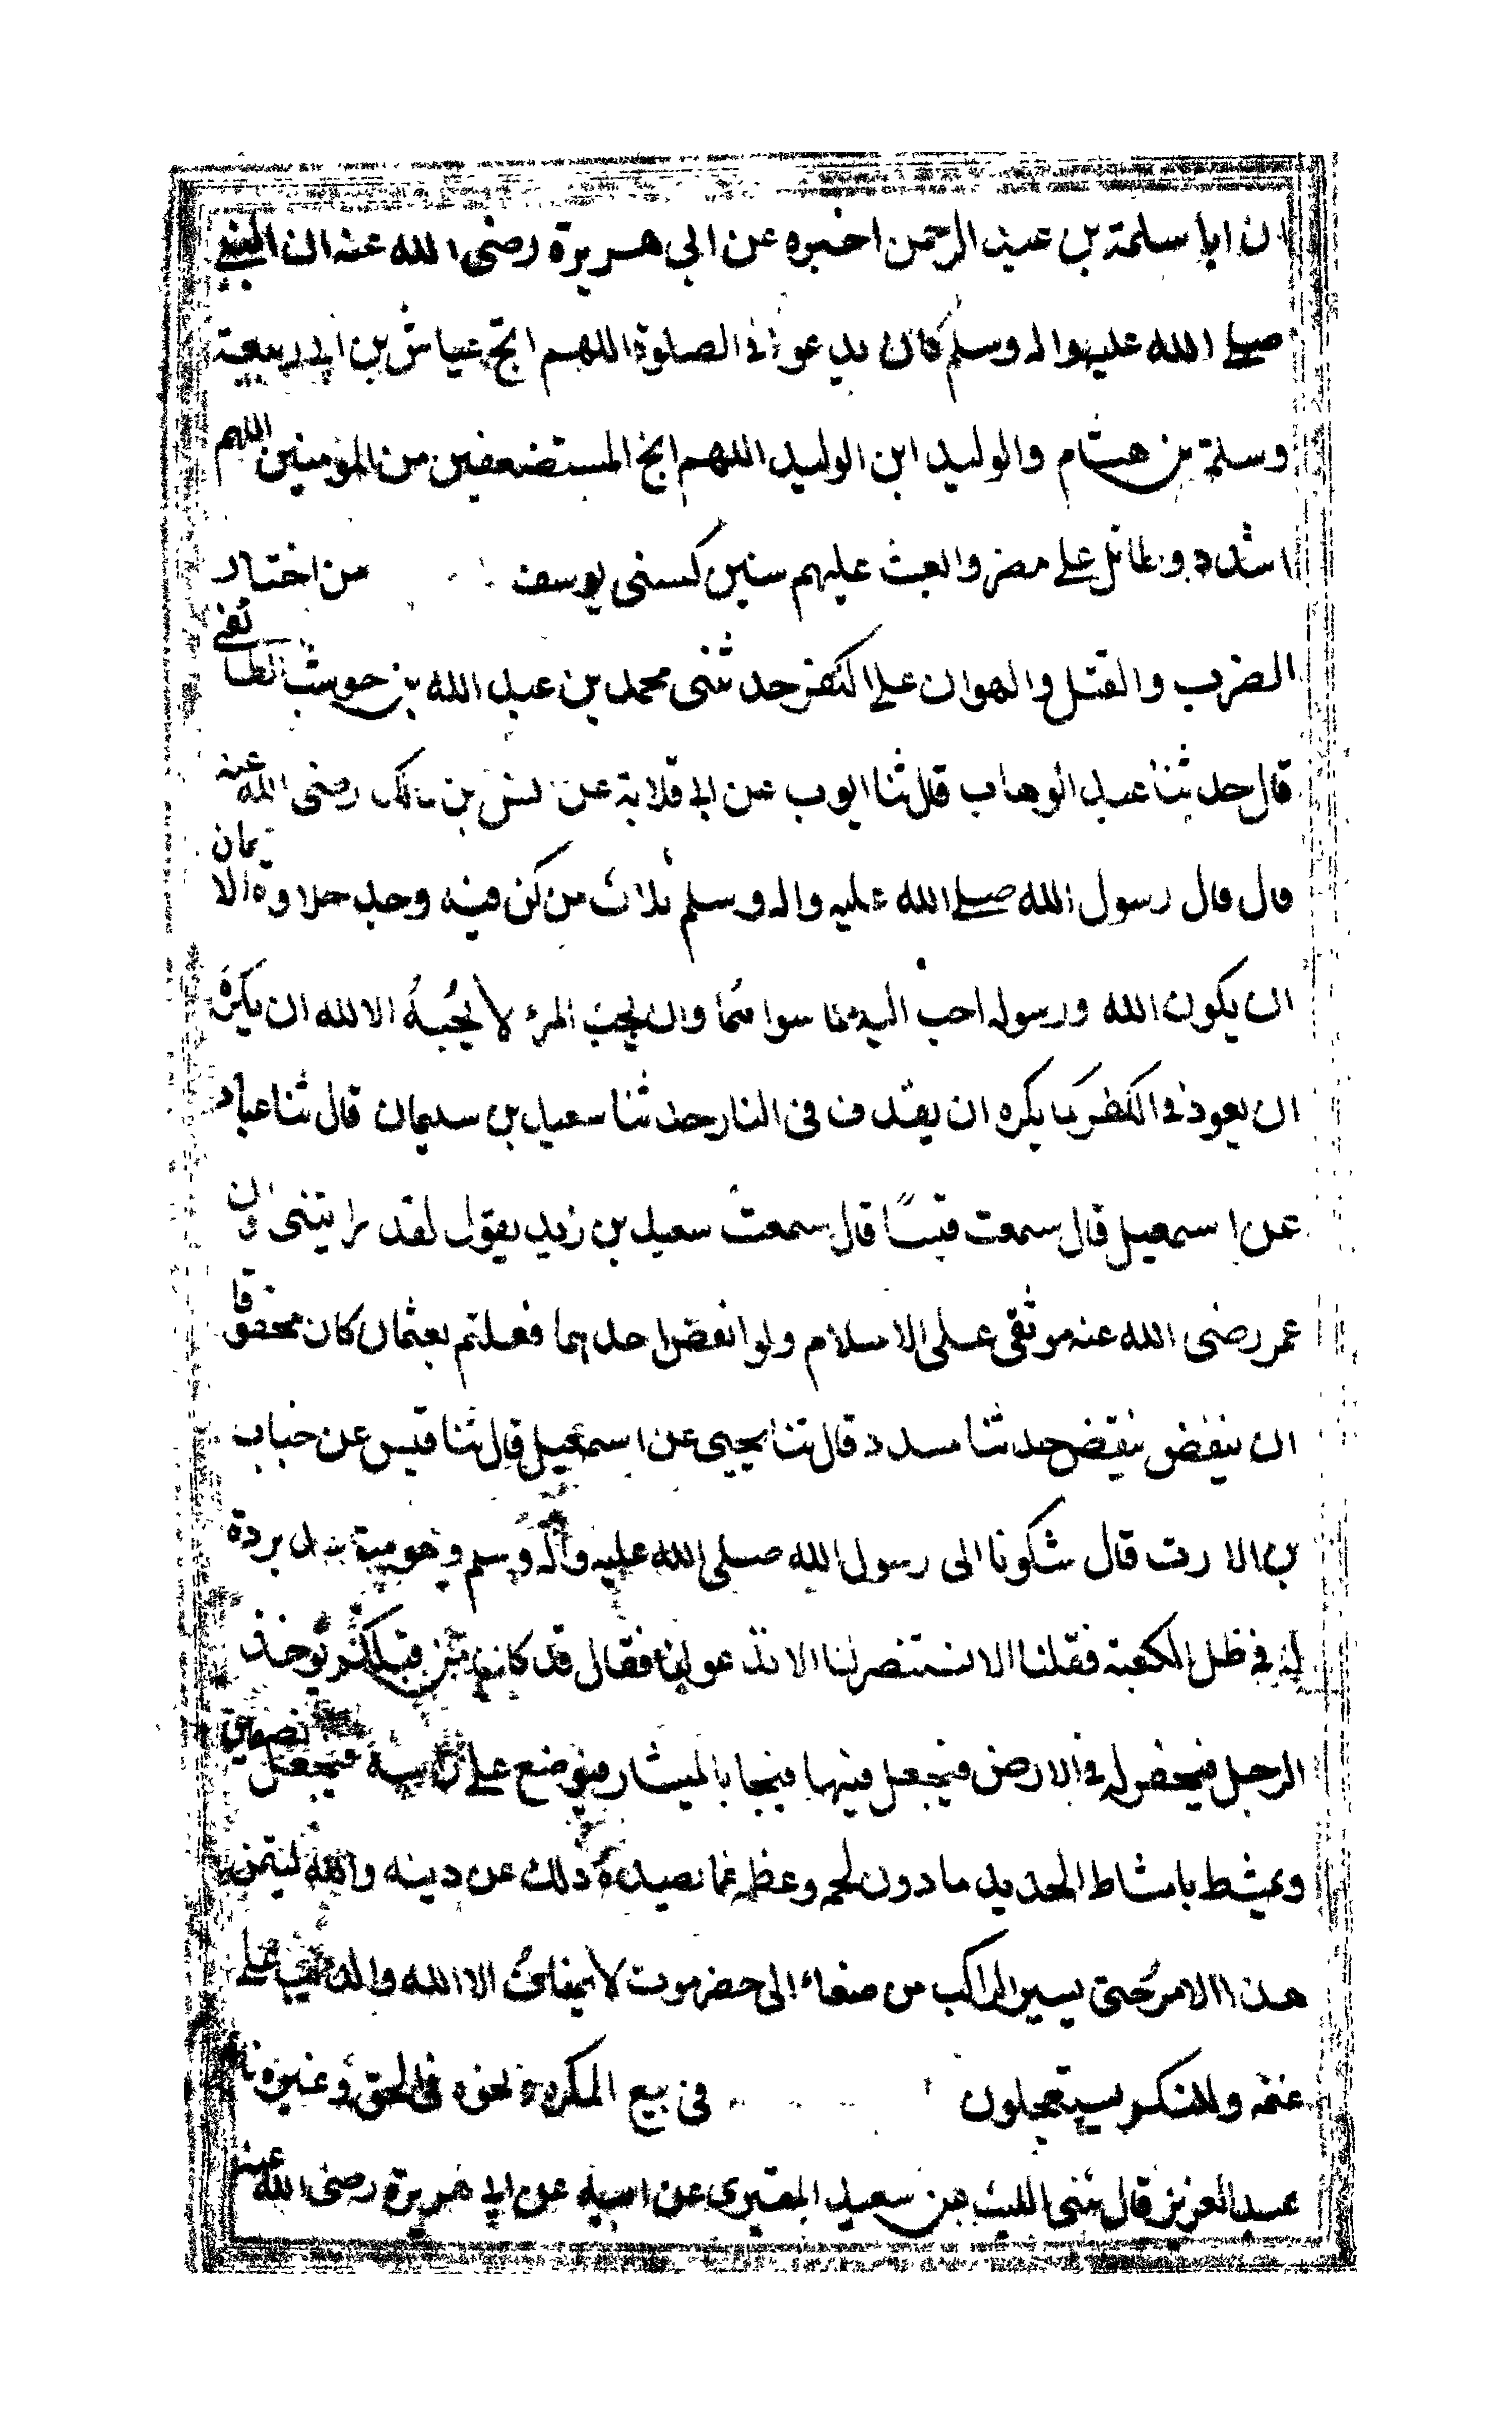 ان ابا سلمة بن عبد الرحمن اخبره عن ابي هريرة رضى الله عنه ان النبي
صلى الله عليه واله وسلم كان يدعو في الصلوة اللهم انج عياش بن ابي ربيعة
وسلمة بن هشام والوليد ابن الوليد اللهم انج المستضعفين من المؤمنين اللهم
اشدد وطاتك على مضر وابعث عليهم سنين كسنى يوسف من اختار
الضرب والقتل والهوان على الكفر حدثنى محمد بن عبد الله بن حوشب الطائفي
قال حدثنا عبد الوهاب قال ثنا ايوب عن ابي قلابة عن انس بن مالك رضى الله عنه
قال قال رسول الله صلى الله عليه واله وسلم ثلاث من كن فيه وجد حلاوة الايمان
ان يكون الله ورسوله احب اليه مما سواهما وان يحب المرء لا يُحبهُ الا لله ان يكره
ان يعود في الكفر كما يكره ان يقذف في النار حدثنا سعيد بن سليمان قال ثنا عباد
عن اسمعيل قال سمعت قيسًا قال سمعت سعيد بن زيد يقول لقد رايتنى وان
عمر رضى الله عنه موثقى على الاسلام ولو انفض احد مما فعلتم بعثمان كان محقوقا
ان ينفض ينقض حدثنا مسدد قال ثنا يحيى عن اسمعيل قال ثنا قيس عن خباب
بن الارت قال شكونا الى رسول الله صلى الله عليه واله وسلم وهو متوسد بردة
له في ظل الكعبة فقلنا الا تستنصر لنا الا تدعو لنا فقال قد كان من قبلكم يؤخذ
الرجل فيحفر له في الارض فيجعل فيها فيجا بالميشار فيوضع على راسه فيجعل نصفين
ويمشط بامشاط الحديد ما دون لحمه وعظمه فما يصده ذلك عن دينه والله ليتمن
هذا الامر حتى يسير الراكب من صنعاء الى حضرموت لا يخاف الا الله والذئب على
غنمه ولكنكم تستعجلون في بيع المكره ونحوه في الحق وغيره ثنا
عبد العزيز قال ثنى الليث عن سعيد المقبرى عن ابيه عن ابي هريرة رضى الله عنه